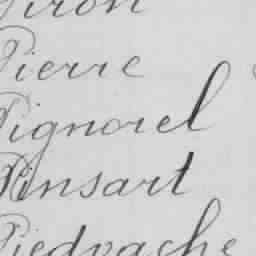 Piron
Pierre
Pignorel
Pinsart
Piedvache